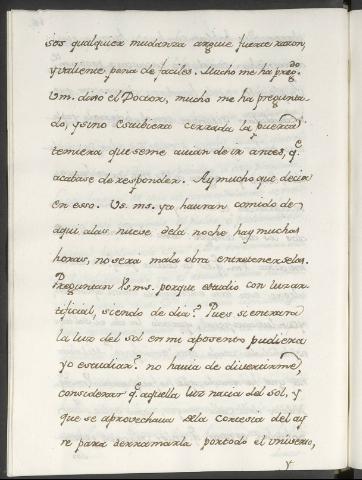 sos qualquier mudianza arguie fuerte razon,
y valiente pena de faciles. Mucho me ha preg.do
Vm. dixo el Doctor, mucho me ha pregunta-
do, y sino estubiera cerrada la puerta
temiera que se me auian de ir antes, q.e
acabase de responder. Ay mucho que decir
en eso. Vs. ms. ya hauran comido de
aqui alas nueve dela noche hay muchas
horas, no sera mala obra entretenerselas.
Preguntan Vs. ms. porque estudio con luz ar-
tificial, siendo de dia? Pues si entrara
la luz del sol en mi aposento pudiera
yo estudiar? no hauia de divertirme,
considerar q.e aquella luz nacia del sol, y
que se aprovechava dela cortesia del ay-
re para derramarla por todo el vniverso,
y